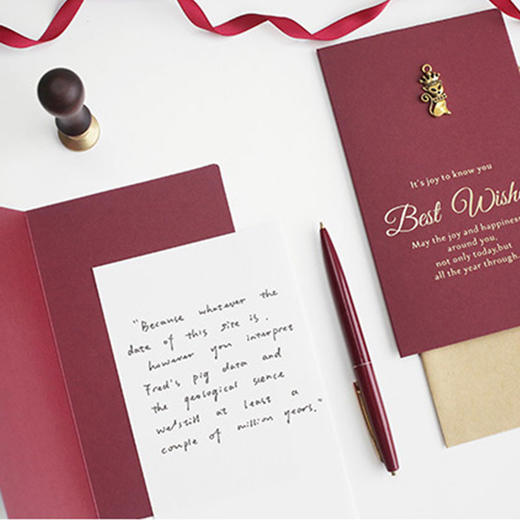 It's joy to know you
Best Wish
May the joy and happiness
around you,
not only today,but
all the year through.
"Because whatever the
date of this site is.
however you interpret
Fred's pig data and
the geological sience
we'still at least a
couple of million years."